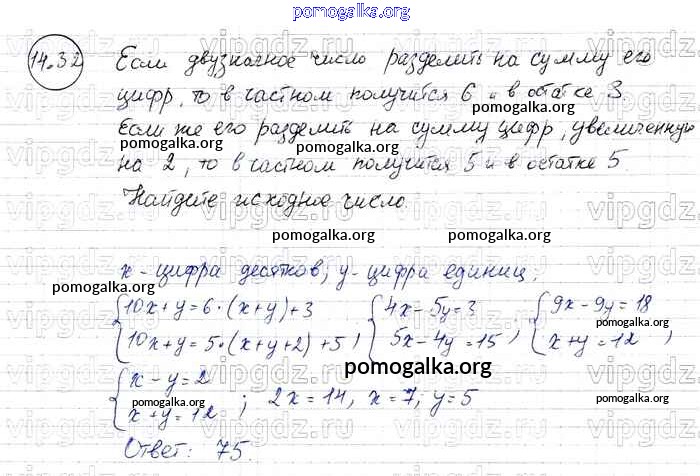 pomogalka.org
14.32 Если двузначное число разделить на сумму его
цифр, то в частном получится 6 и в остатке 3.
pomogalka.org
Если же его разделить на сумму цифр, увеличенную
на 2, то в частном получится 5 и в остатке 5.
pomogalka.org
Найдите исходное число.
pomogalka.org pomogalka.org
x - цифра десятков; y - цифра единиц;
pomogalka.org
{10x+y=6·(x+y)+3 {4x-5y=3 {9x-9y=18
pomogalka.org
{10x+y=5·(x+y+2)+5; {5x-4y=15; {x+y=12;
pomogalka.org
{x-y=2
{x+y=12; 2x=14, x=7; y=5
pomogalka.org pomogalka.org
Ответ: 75.
vipgdz